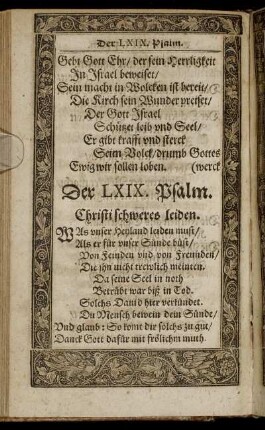 Der LXIX. Psalm.
Gebt Gott Ehr/ der sein Herrligkeit
In Israel beweiset/
Sein macht in Wolcken ist bereit/
Die Kirch sein Wunder preiset/
Der Gott Israel
Schützet leib vnd Seel/
Er gibt krafft vnd sterck
Seim Volck/ drumb Gottes
Ewig wir sollen loben. (werck
Der LXIX. Psalm.
Christi schweres leiden.
WAs vnser Heyland leiden must/
Als er für vnser Sünde büst/
Von Feinden vnd von Freunden/
Die jhn nicht trewlich meinten.
Da seine Seel in noth
Betrübt war biß in Tod.
Solchs Dauid hier verkündet.
Du Mensch bewein dein Sünde/
Vnd glaub: So komt dir solchs zu gut/
Danck Gott dafür mit frölichm muth